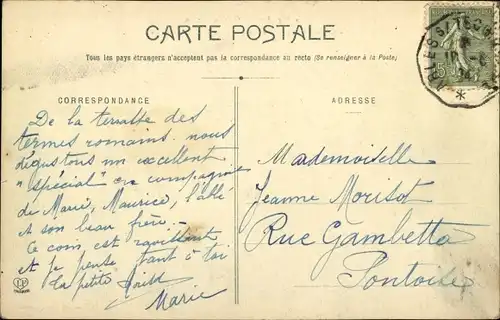 CARTE POSTALE
Tous les pays étrangers n'acceptent pas la correspondance au recto (Se renseigner à la Poste)
CORRESPONDANCE
ADRESSE
De la terrasse des
termes romains, nous
dégustons un excellent
"spécial" en compagnie
de Marie, Maurice, l'abbé
et son beau frère. -
Ce coin est ravissant
et je pense tant à toi
La petite
Marie
Mademoiselle
Jeanne Morisot
Rue Gambetta
Pontoise
LP